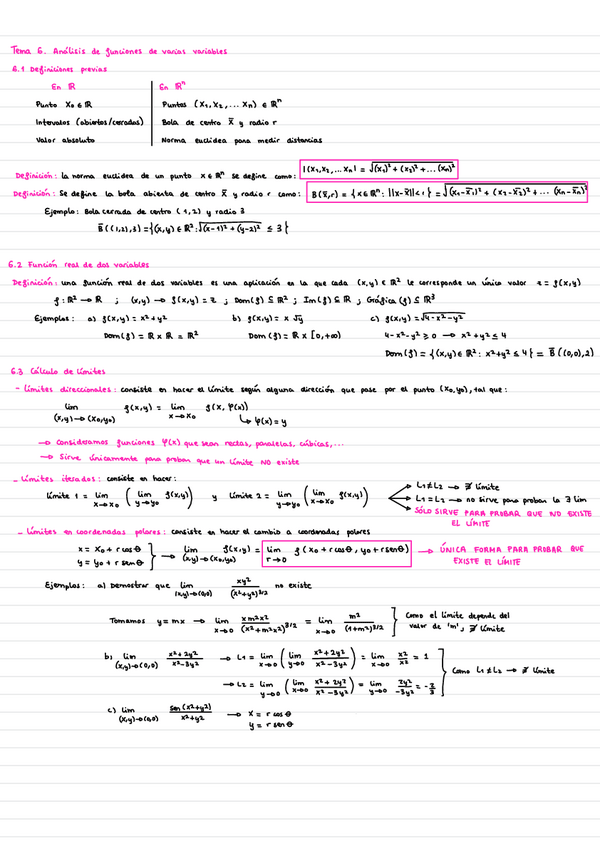 Tema 6. Análisis de funciones de varias variables
6.1 Definiciones previas
En ℝ | En ℝⁿ
Punto X₀ ∈ ℝ | Puntos (X₁, X₂, ... Xₙ) ∈ ℝⁿ
Intervalos (abiertos/cerrados) | Bola de centro x̄ y radio r
Valor absoluto | Norma euclídea para medir distancias
Definición: la norma euclídea de un punto x ∈ ℝⁿ se define como: |(X₁, X₂, ... Xₙ| = √(X₁)² + (X₂)² + ... (Xₙ)²
Definición: Se define la bola abierta de centro x̄ y radio r como: B(x̄, r) = {x ∈ ℝⁿ: ||x-x̄|| < r} = √(X₁-x̄₁)² + (X₂-x̄₂)² + ... (Xₙ-x̄ₙ)²
Ejemplo: Bola cerrada de centro (1,2) y radio 3
B̄((1,2),3) = {(x,y) ∈ ℝ²: √(x-1)² + (y-2)² ≤ 3}
6.2 Función real de dos variables
Definición: una función real de dos variables es una aplicación en la que cada (x,y) ∈ ℝ² le corresponde un único valor z = f(x,y)
f: ℝ² → ℝ ; (x,y) → f(x,y) = z ; Dom(f) ⊆ ℝ² ; Im(f) ⊆ ℝ ; Gráfica(f) ⊆ ℝ³
Ejemplos: a) f(x,y) = x² + y² b) f(x,y) = x √y c) f(x,y) = √4-x²-y²
Dom(f) = ℝ x ℝ = ℝ² Dom(f) = ℝ x [0,+∞) 4-x²-y² ≥ 0 → x² + y² ≤ 4
Dom(f) = {(x,y) ∈ ℝ²: x² + y² ≤ 4} = B̄((0,0),2)
6.3 Cálculo de límites
- Límites direccionales: consiste en hacer el límite según alguna dirección que pase por el punto (x₀,y₀), tal que:
lim (x,y)→(x₀,y₀) f(x,y) = lim x→x₀ f(x, φ(x))
↳ φ(x) = y
→ Consideramos funciones φ(x) que sean rectas, paralelas, cúbicas,...
→ Sirve únicamente para probar que un límite NO existe
- Límites iterados: consiste en hacer:
Límite 1 = lim x→x₀ ( lim y→y₀ f(x,y) ) y Límite 2 = lim y→y₀ ( lim x→x₀ f(x,y) )
L₁ ≠ L₂ → ∄ límite
L₁ = L₂ → no sirve para probar la ∃ lim
SÓLO SIRVE PARA PROBAR QUE NO EXISTE
EL LÍMITE
- Límites en coordenadas polares: consiste en hacer el cambio a coordenadas polares
x = x₀ + r cos θ
y = y₀ + r sen θ } → lim (x,y)→(x₀,y₀) f(x,y) = lim r→0 f(x₀ + r cos θ, y₀ + r sen θ) → ÚNICA FORMA PARA PROBAR QUE
EXISTE EL LÍMITE
Ejemplos: a) Demostrar que lim (x,y)→(0,0) xy²/(x²+y²)^3/2 no existe
Tomamos y = mx → lim x→0 x m²x²/(x²+m²x²)^3/2 = lim x→0 m²/(1+m²)^3/2 } Como el límite depende del
valor de 'm', ∄ límite
b) lim (x,y)→(0,0) x²+2y²/x²-3y² → L₁ = lim x→0 ( lim y→0 x²+2y²/x²-3y² ) = lim x→0 x²/x² = 1
→ L₂ = lim y→0 ( lim x→0 x²+2y²/x²-3y² ) = lim y→0 2y²/-3y² = -2/3 } Como L₁ ≠ L₂ → ∄ límite
c) lim (x,y)→(0,0) sen(x²+y²)/x²+y² → x = r cos θ
y = r sen θ